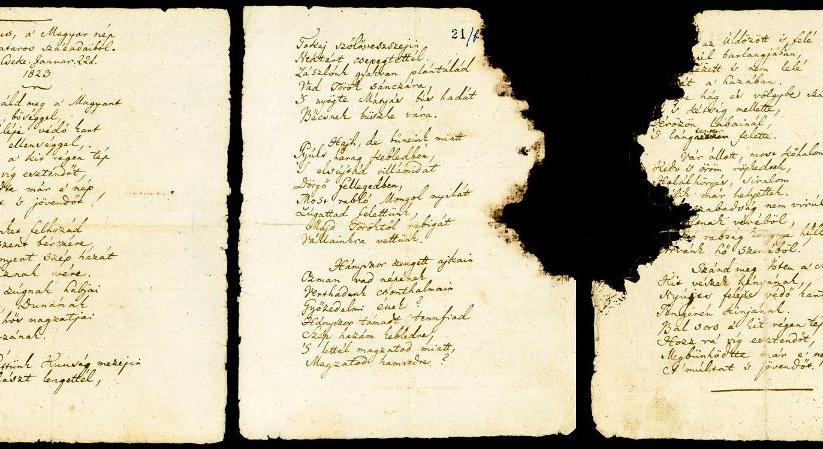 us, a Magyar nép
ataros századaiból.
Cseke, Januar. 22d.
1823
áld meg a' Magyart
bőséggel,
védő kart
ellenséggel,
a kit régen tép
víg esztendőt,
már e' nép
's jövendőt!
felhozád
szent bérczére,
nyert szép hazát
vére.
zúgnak habjai
Dunának
hős magzatjai
Kunság mezején
lengettél,
21/f
Tokaj szőlővesszejin
Nektárt csepegtettél.
Zászlónk gyakran plántálád
Vad Török sánczára,
'S nyögte Mátyás bús hadát
Bécsnek büszke vára.
Hajh, de bűneink miatt
Gyúlt harag kebledben,
'S elsújtád villámidat
Dörgő fellegedben,
Most rabló Mongol nyilát
Zúgattad felettünk,
Majd Töröktől rabigát
Vállainkra vettünk.
Hányszor zengett ajkain
Ozman vad népének
Vert hadunk csonthalmain
Győzedelmi ének!
Hányszor támadt tenn fiad
Szép hazám kebledre,
'S lettél magzatod miatt,
Magzatod hamvedre?
az üldözött 's felé
barlangjában,
's nem lelé
a' hazában.
hág és völgybe
's kétség mellette,
Vérözön lábainál,
'S láng felette.
Vár állott, most kőhalom,
Kedv 's öröm röpkedtek,
Halálhörgés, siralom
már helyettek.
szabadság nem virúl
véréből,
rabság könnye
hő szeméből!
Szánd meg Isten a'
Kit vészek hányának,
Nyújts feléje védő kart
Tengerén kínjának.
Bal sors a kit régen tép,
Hozz rá víg esztendőt,
Megbűnhődte már e' nép
A' múltat 's jövendőt!